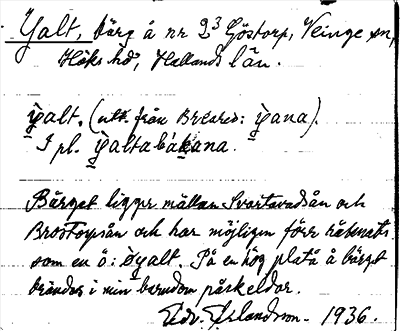 Yalt, bärg å nr 2³ Göstorp, Veinge sn,
Höks hd, Hallands län.
ỳalt. (utt. från Breared: ỳana).
I pl. ỳaltabákana.
Bärget ligger mällan Svartavadsån och
Brostorpsån och har möjligen förr häbnats
som en ö: øyalt. På en hög platå å bärget
brändes i min barndom påskeldar.
Edv. Erlandsson. 1936.